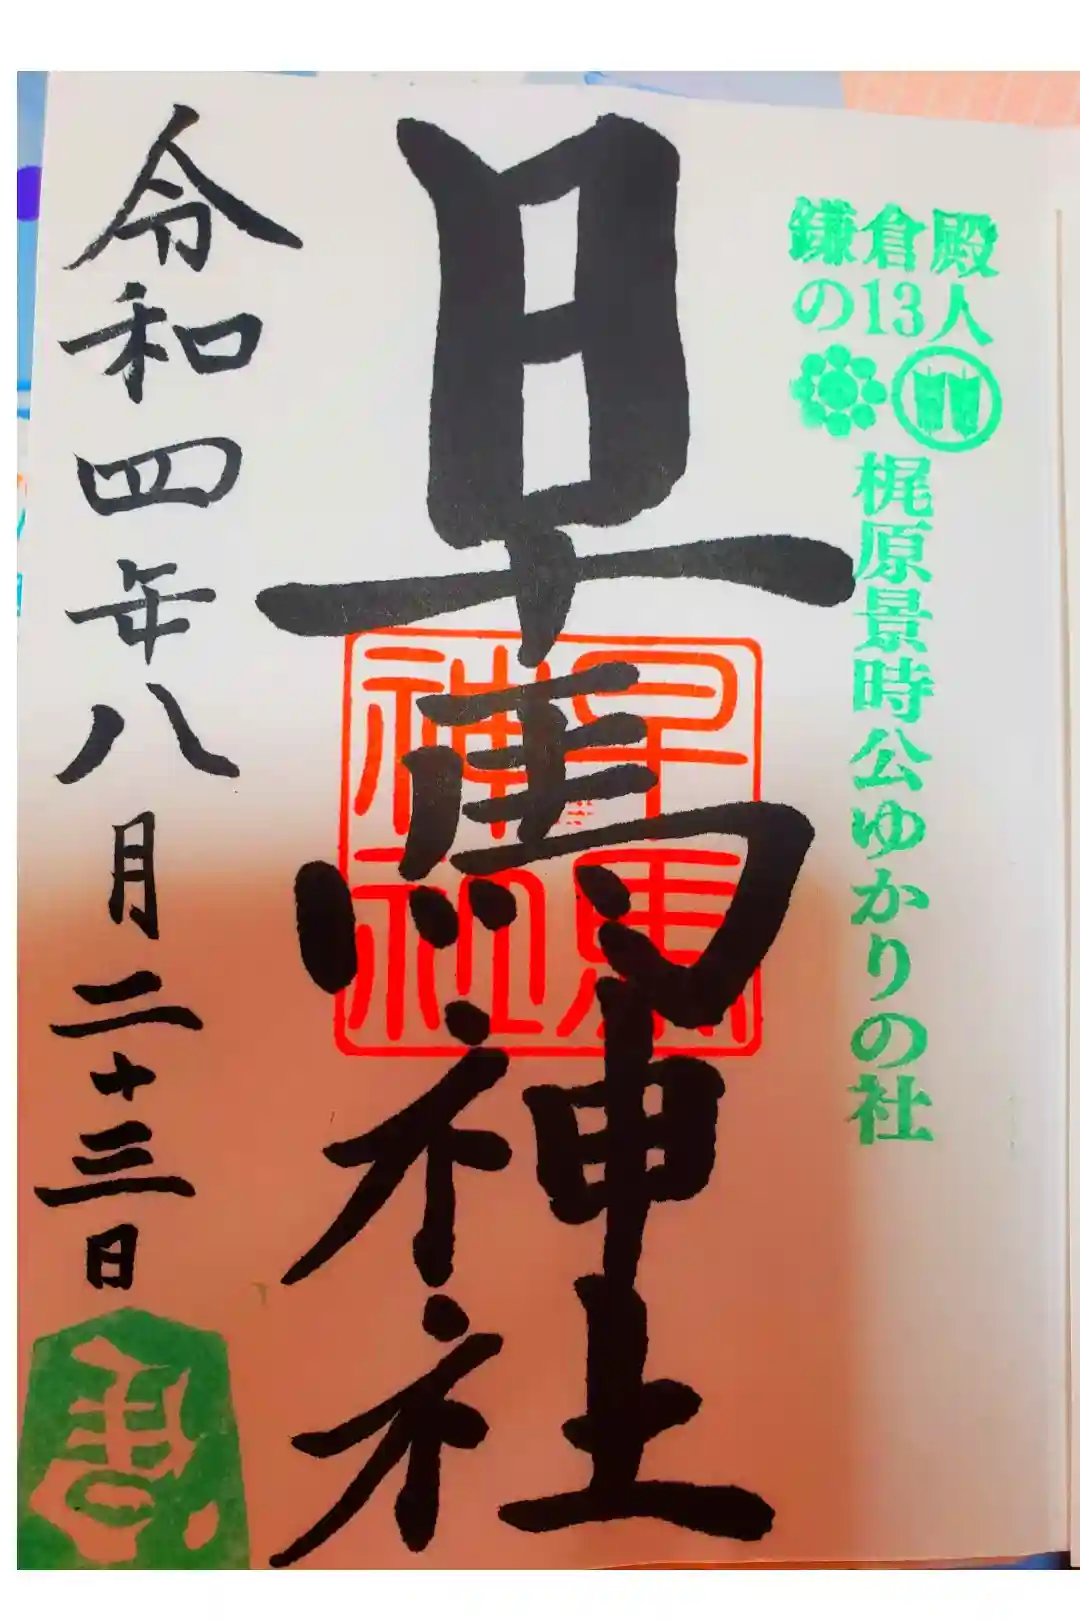 鎌倉殿
の13人
梶原景時公ゆかりの社
早馬神社
早馬
神社
令和四年八月二十三日